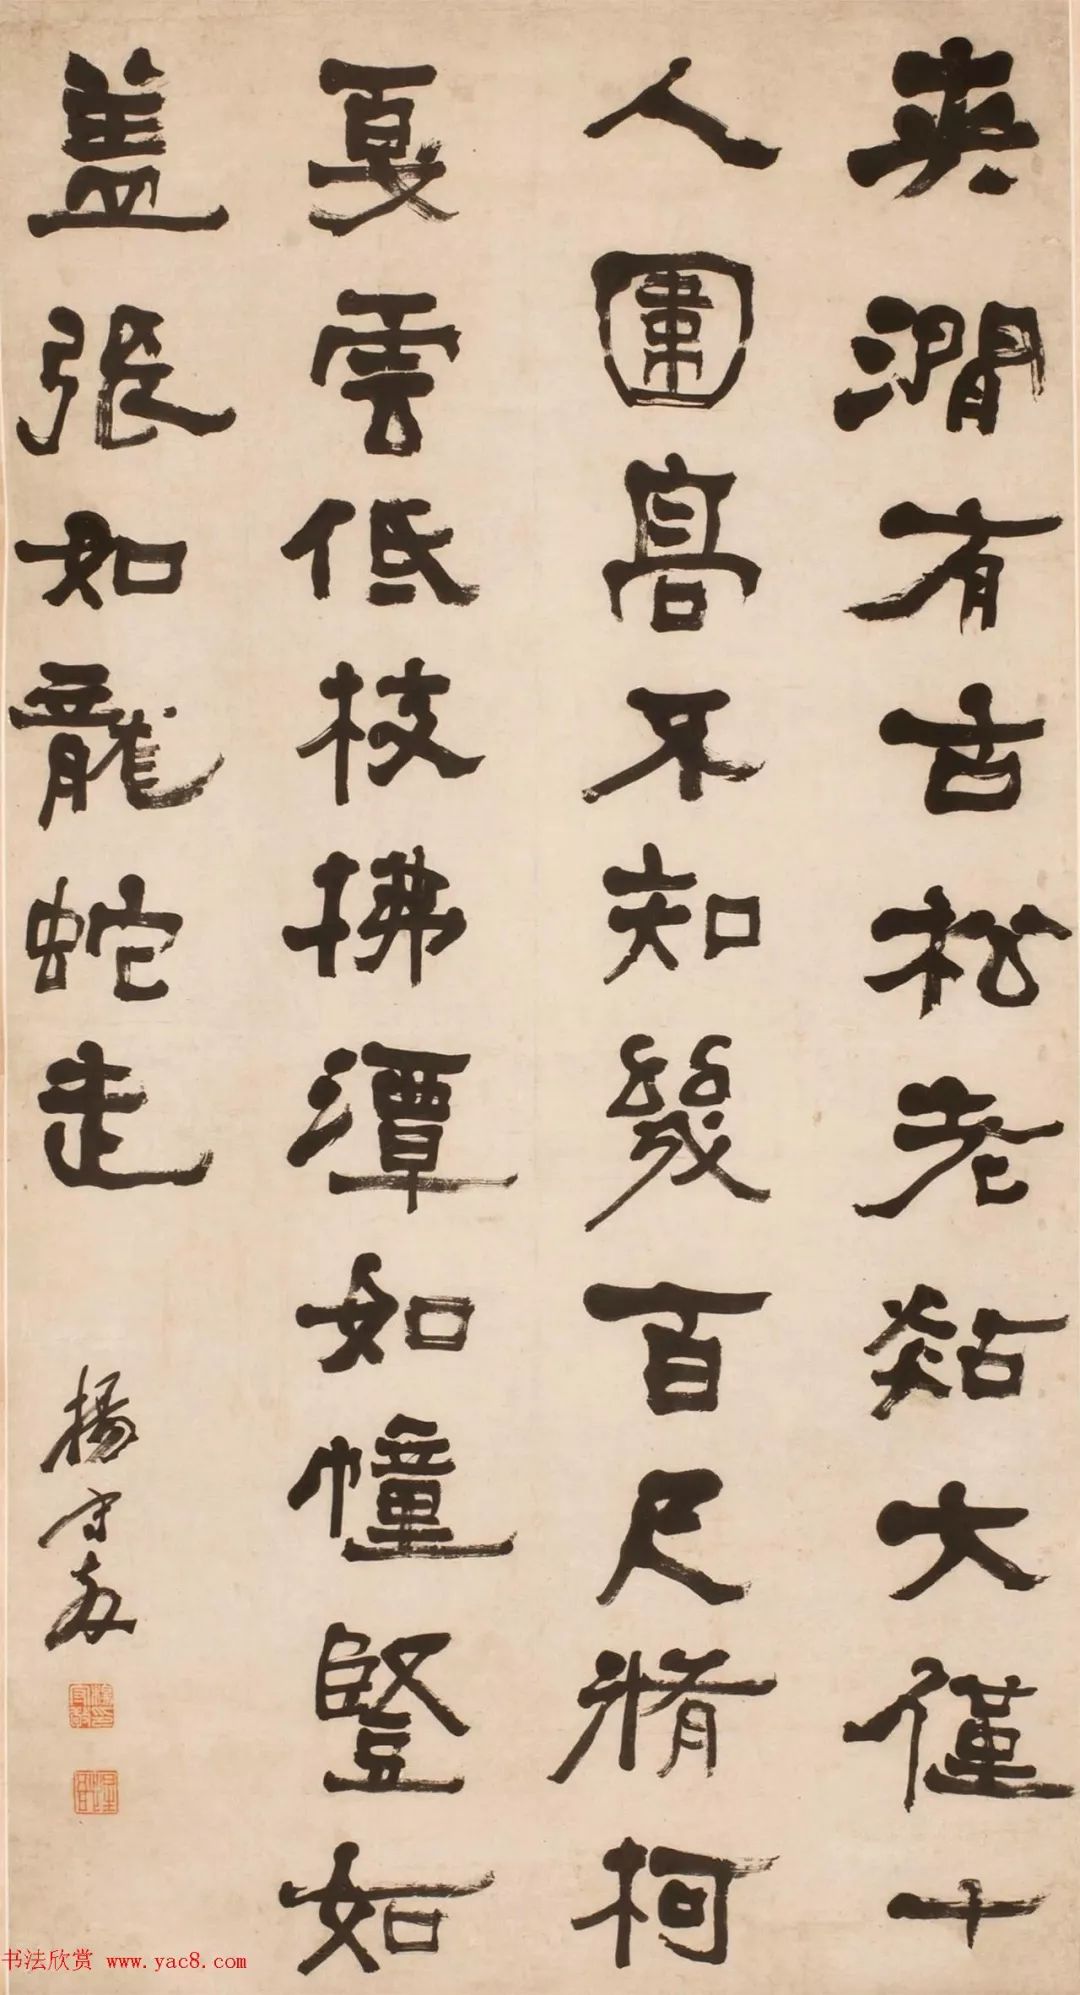 夾澗有古松老煔大僅十
人圍高不知幾百尺脩柯
夏雲低枝拂潭如幢豎如
盖張如龍蛇走
楊守敬
楊守敬印
书法欣赏 www.yac8.com